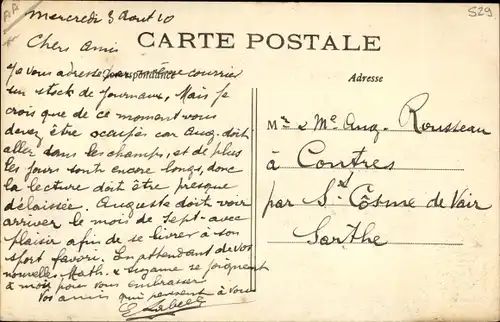 AA
529
Mercredi 3 Aout 10
Chers Amis
CARTE POSTALE
Correspondance
Adresse
Je vous adresse par même courrier
un stock de Journaux, Mais je
crois que de ce moment vous
devez être occupés car Aug. doit
aller dans les champs, et de plus
les jours sont encore longs, donc
la lecture doit être presque
délaissée. Auguste doit voir
arriver le mois de Sept. avec
plaisir afin de se livrer à son
sport favori. En attendant de vos
nouvelles Math. & Suzanne se joignent
à moi pour vous embrasser
Vos amis qui pensent à vous
Mr & Me Aug. Rousseau
à Contres
par St Cosme de Vair
Sarthe